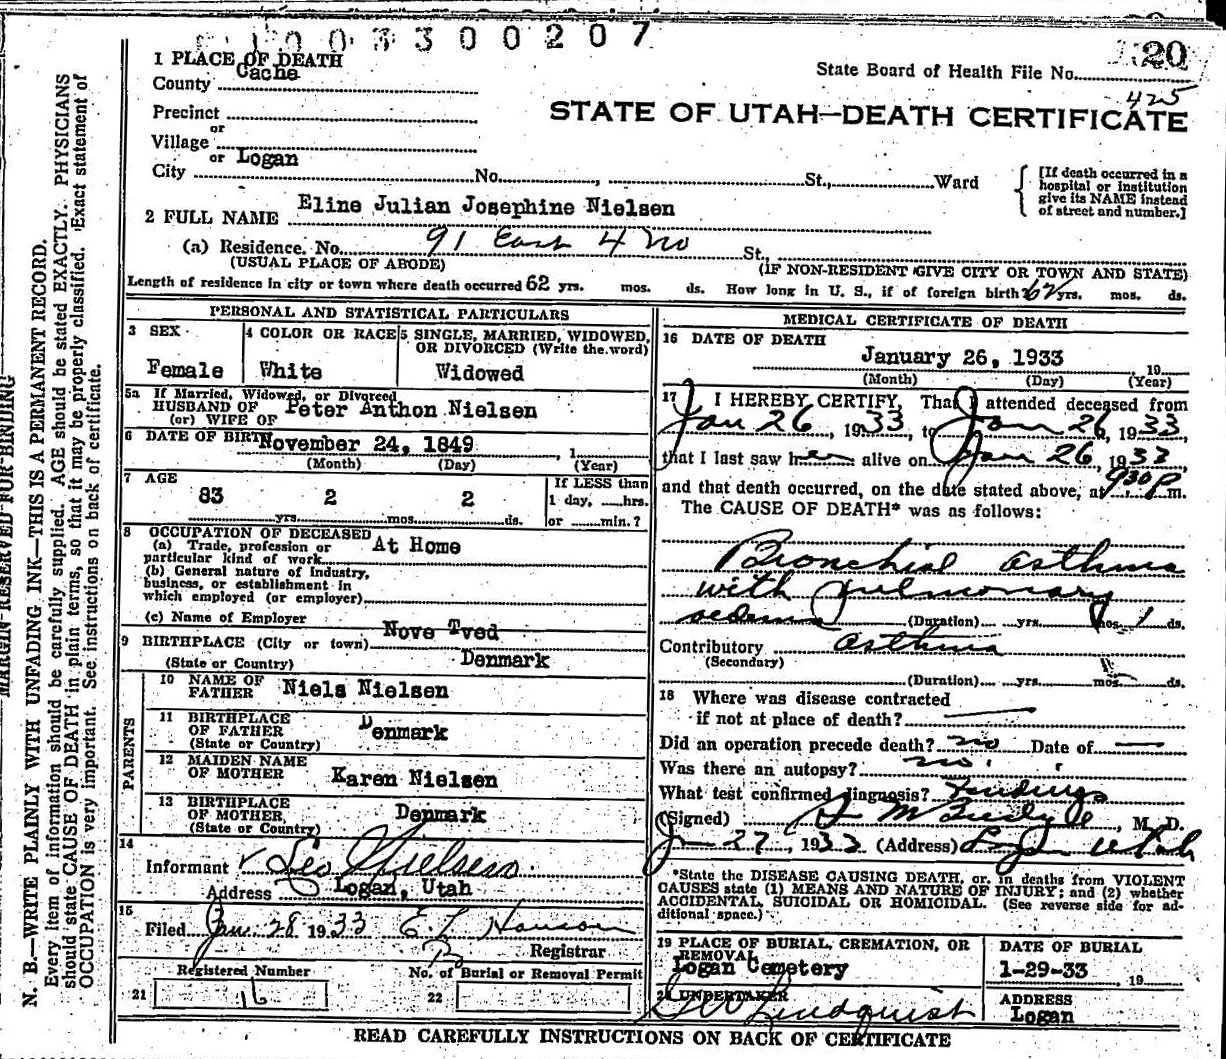 1 0 0 3 3 0 0 2 0 7
20
1 PLACE OF DEATH
State Board of Health File No.
County Cache
425
Precinct
STATE OF UTAH—DEATH CERTIFICATE
or
Village
or Logan
City No. , St., Ward
[If death occurred in a
hospital or institution
give its NAME instead
of street and number.]
2 FULL NAME Eline Julian Josephine Nielsen
(a) Residence. No. 91 East 4 No St.,
(USUAL PLACE OF ABODE) (IF NON-RESIDENT GIVE CITY OR TOWN AND STATE)
Length of residence in city or town where death occurred 62 yrs. mos. ds. How long in U. S., if of foreign birth? 62 yrs. mos. ds.
PERSONAL AND STATISTICAL PARTICULARS
3 SEX
Female
4 COLOR OR RACE
White
5 SINGLE, MARRIED, WIDOWED,
OR DIVORCED (Write the word)
Widowed
5a If Married, Widowed, or Divorced
HUSBAND OF
(or) WIFE OF Peter Anthon Nielsen
6 DATE OF BIRTH November 24, 1849 , 1
(Month) (Day) (Year)
7 AGE
83 yrs. 2 mos. 2 ds.
If LESS than
1 day, hrs.
or min.?
8 OCCUPATION OF DECEASED
(a) Trade, profession or
particular kind of work At Home
(b) General nature of industry,
business, or establishment in
which employed (or employer)
(c) Name of Employer
9 BIRTHPLACE (City or town) Nove Tved
(State or Country) Denmark
PARENTS
10 NAME OF
FATHER Niels Nielsen
11 BIRTHPLACE
OF FATHER Denmark
(State or Country)
12 MAIDEN NAME
OF MOTHER Karen Nielsen
13 BIRTHPLACE
OF MOTHER Denmark
(State or Country)
14
Informant Leo Nielsen
Address Logan, Utah
15
Filed Jan. 28 1933 E. L. Hanson
Registrar
Registered Number
21 16
No. of Burial or Removal Permit
22
MEDICAL CERTIFICATE OF DEATH
16 DATE OF DEATH
January 26, 1933 19
(Month) (Day) (Year)
17 I HEREBY CERTIFY, That I attended deceased from
Jan 26, 1933, to Jan 26, 1933,
that I last saw her alive on Jan 26, 1933,
and that death occurred, on the date stated above, at 930 P. m.
The CAUSE OF DEATH* was as follows:
Bronchial asthma
with pulmonary
edema (Duration) yrs. mos. 1 ds.
Contributory asthma
(Secondary)
(Duration) yrs. mos. ds.
18 Where was disease contracted
if not at place of death?
Did an operation precede death? no Date of
Was there an autopsy? no.
What test confirmed diagnosis? Findings
(Signed) , M. D.
Jan 27, 1933 (Address) Logan Utah
*State the DISEASE CAUSING DEATH, or, in deaths from VIOLENT
CAUSES state (1) MEANS AND NATURE OF INJURY; and (2) whether
ACCIDENTAL, SUICIDAL OR HOMICIDAL. (See reverse side for ad-
ditional space.)
19 PLACE OF BURIAL, CREMATION, OR
REMOVAL
Logan Cemetery
DATE OF BURIAL
1-29-33 , 19
UNDERTAKER
Lindquist
ADDRESS
Logan
READ CAREFULLY INSTRUCTIONS ON BACK OF CERTIFICATE
MARGIN RESERVED FOR BINDING
N. B.—WRITE PLAINLY WITH UNFADING INK—THIS IS A PERMANENT RECORD.
Every item of information should be carefully supplied. AGE should be stated EXACTLY. PHYSICIANS
should state CAUSE OF DEATH in plain terms, so that it may be properly classified. Exact statement of
OCCUPATION is very important. See instructions on back of certificate.